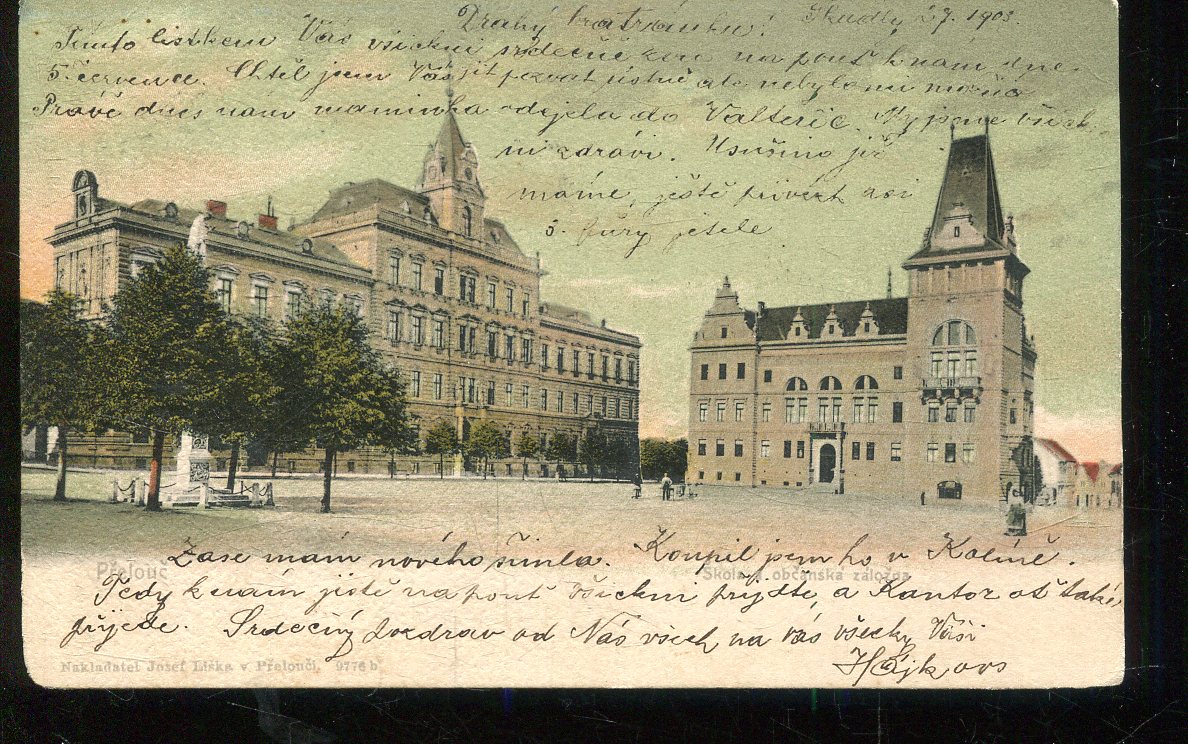 Drahý bratránku! 2/7. 1903.
Tímto lístkem Vás všickni srdečně zvou na pouť k nám dne
5. července. Chtěl jsem Vás jít pozvat ústně ale nebylo mi možno
Právě dnes nám maminka odejela do Valteřic. My jsme všick
ni zdrávi. Usušíno již
máme, ještě přivézt asi
5. fůry jetele
Zase mám nového šimla. Koupil jsem ho v Kolíně.
Přelouč Škola a občanská záložna
Tedy k nám jistě na pouť všickni přijďte, a Kantor ať také
přijede. Srdečný pozdrav od Nás všech, na vás všecky Vaši
Nakladatel Josef Liška v Přelouči. 9776 b
Hájkovs